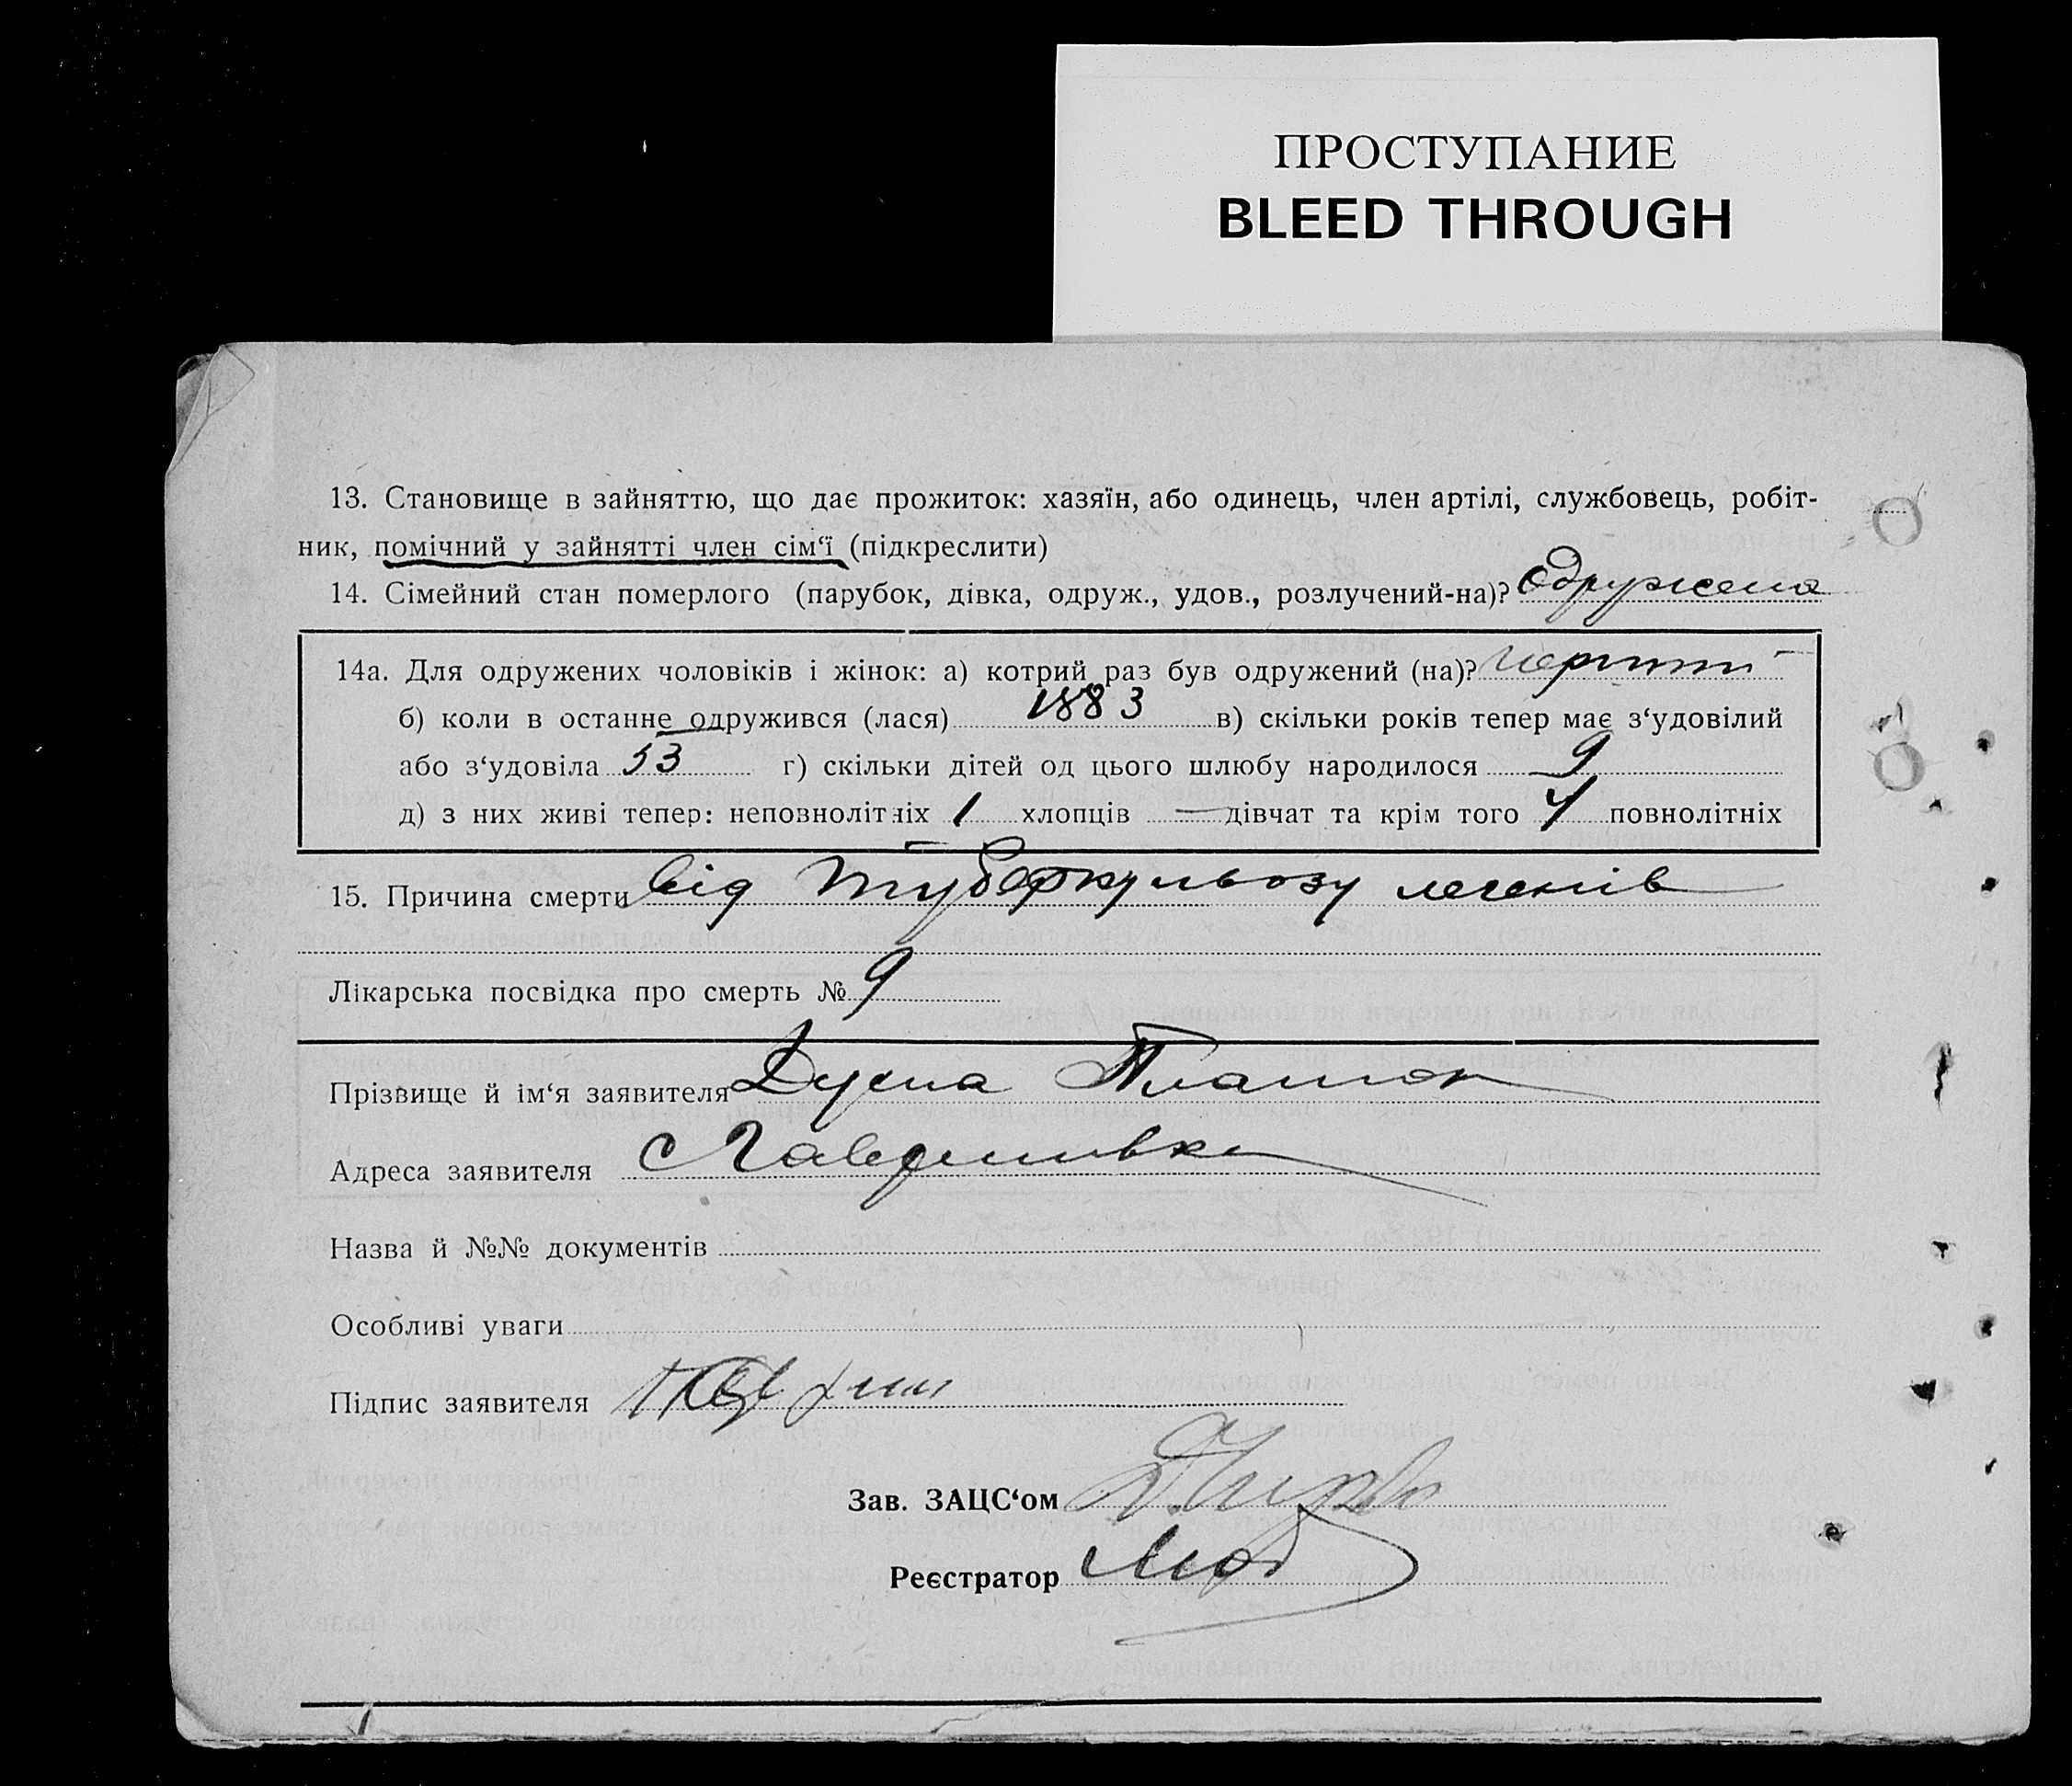 ПРОСТУПАНИЕ
BLEED THROUGH
13. Становище в зайняттю, що дає прожиток: хазяїн, або одинець, член артілі, службовець, робіт-
ник, помічний у зайнятті член сім‘ї (підкреслити)
14. Сімейний стан померлого (парубок, дівка, одруж., удов., розлучений-на)? одружена
14а. Для одружених чоловіків і жінок: а) котрий раз був одружений (на)?
б) коли в останнє одружився (лася) 1883 в) скільки років тепер має з‘удовілий
або з‘удовіла 53 г) скільки дітей од цього шлюбу народилося 9
д) з них живі тепер: неповнолітніх 1 хлопців — дівчат та крім того 4 повнолітніх
15. Причина смерти від туберкульозу легенів
Лікарська посвідка про смерть № 9
Прізвище й ім‘я заявителя Платон
Адреса заявителя с
Назва й №№ документів
Особливі уваги
Підпис заявителя
Зав. ЗАЦС‘ом
Реєстратор